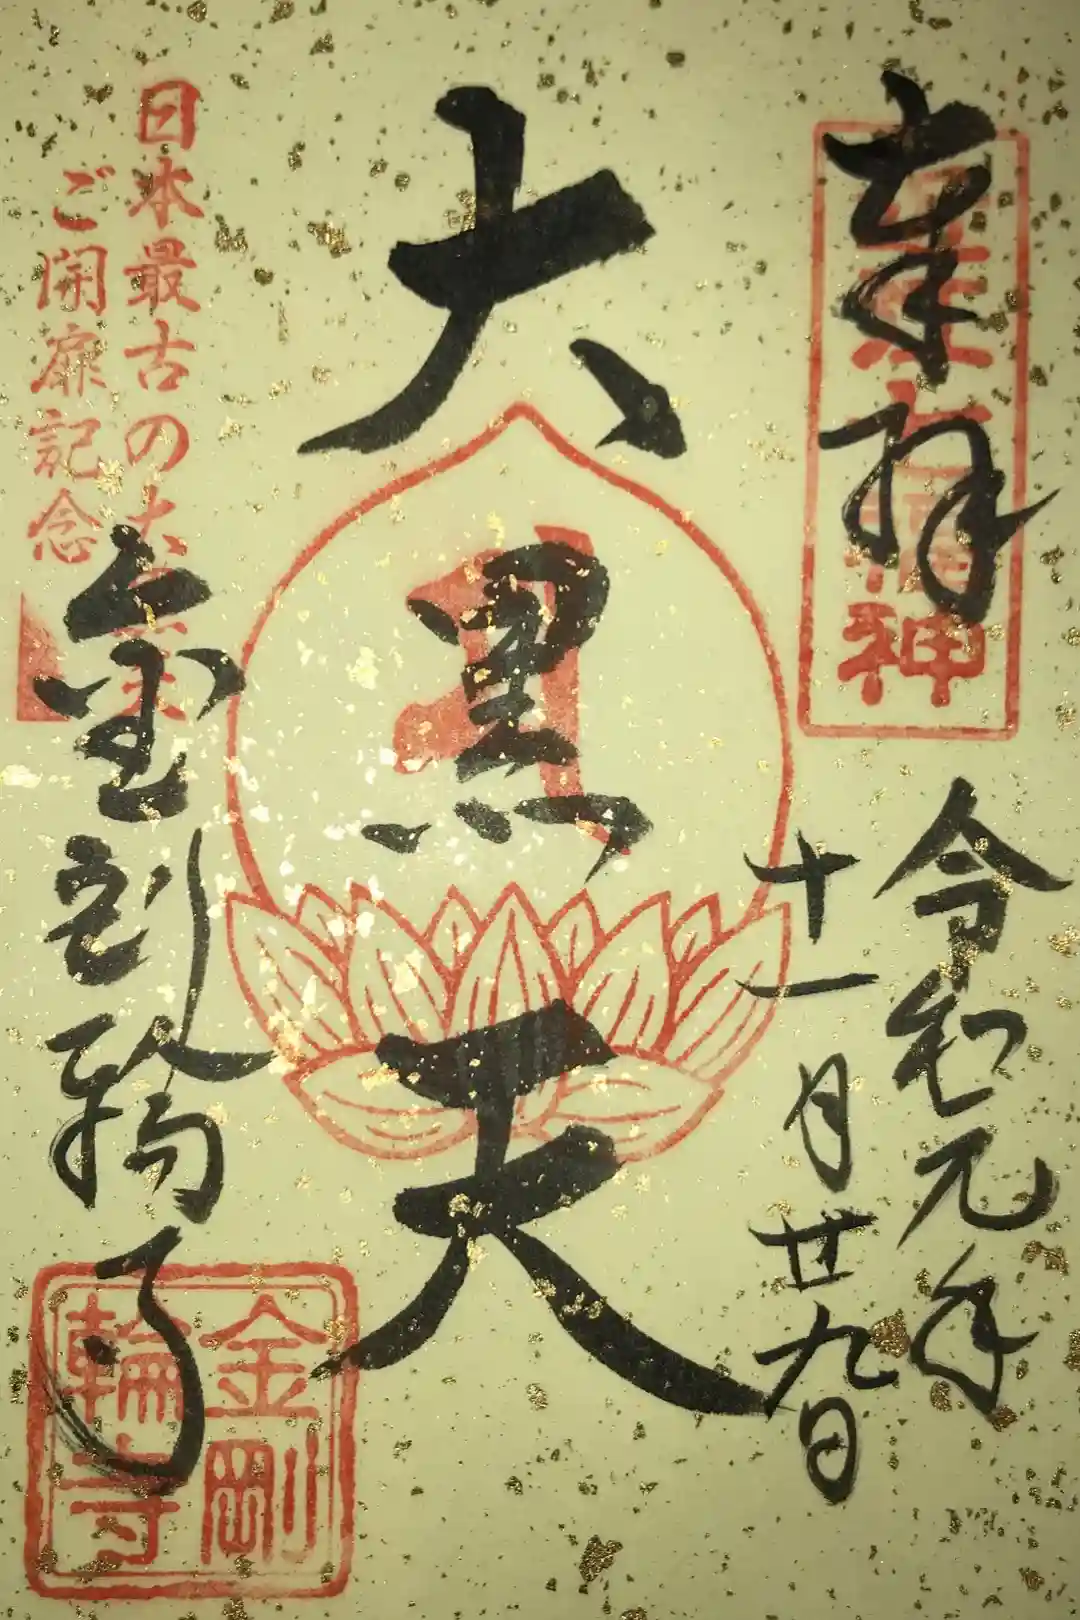 奉拝
神
令和元年
十一月廿九日
大黒天
日本最古の大黒天
ご開扉記念
金剛輪寺
金剛
輪寺